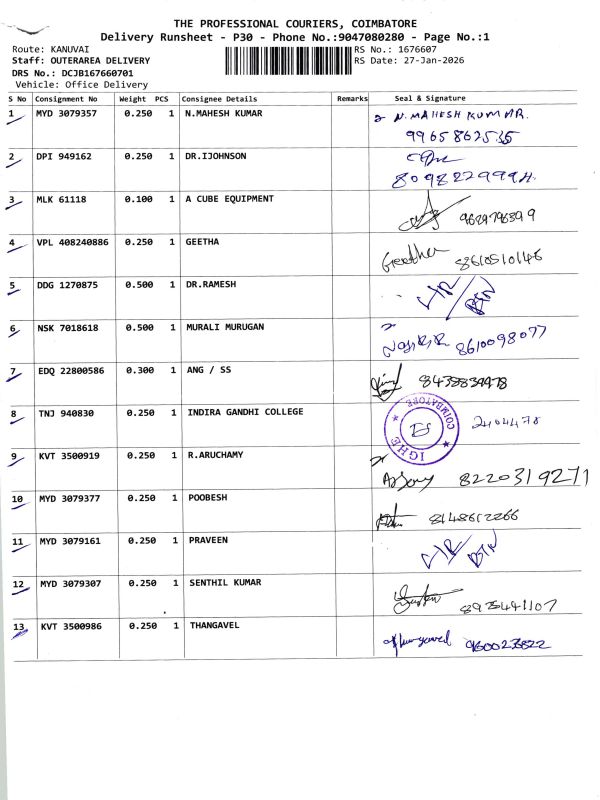 THE PROFESSIONAL COURIERS, COIMBATORE
Delivery Runsheet - P30 - Phone No.:9047080280 - Page No.:1
Route: KANUVAI RS No.: 1676607
Staff: OUTERAREA DELIVERY RS Date: 27-Jan-2026
DRS No.: DCJB167660701
Vehicle: Office Delivery
S No Consignment No Weight PCS Consignee Details Remarks Seal & Signature
1 MYD 3079357 0.250 1 N.MAHESH KUMAR N. MAHESH KUMAR.
2 DPI 949162 0.250 1 DR.IJOHNSON
3 MLK 61118 0.100 1 A CUBE EQUIPMENT
4 VPL 408240886 0.250 1 GEETHA Geetha 8610510146
5 DDG 1270875 0.500 1 DR.RAMESH
6 NSK 7018618 0.500 1 MURALI MURUGAN 8610098077
7 EDQ 22800586 0.300 1 ANG / SS
8 TNJ 940830 0.250 1 INDIRA GANDHI COLLEGE COIMBATORE IGHE 2404478
9 KVT 3500919 0.250 1 R.ARUCHAMY 8220319271
10 MYD 3079377 0.250 1 POOBESH 8148612266
11 MYD 3079161 0.250 1 PRAVEEN
12 MYD 3079307 0.250 1 SENTHIL KUMAR
13 KVT 3500986 0.250 1 THANGAVEL